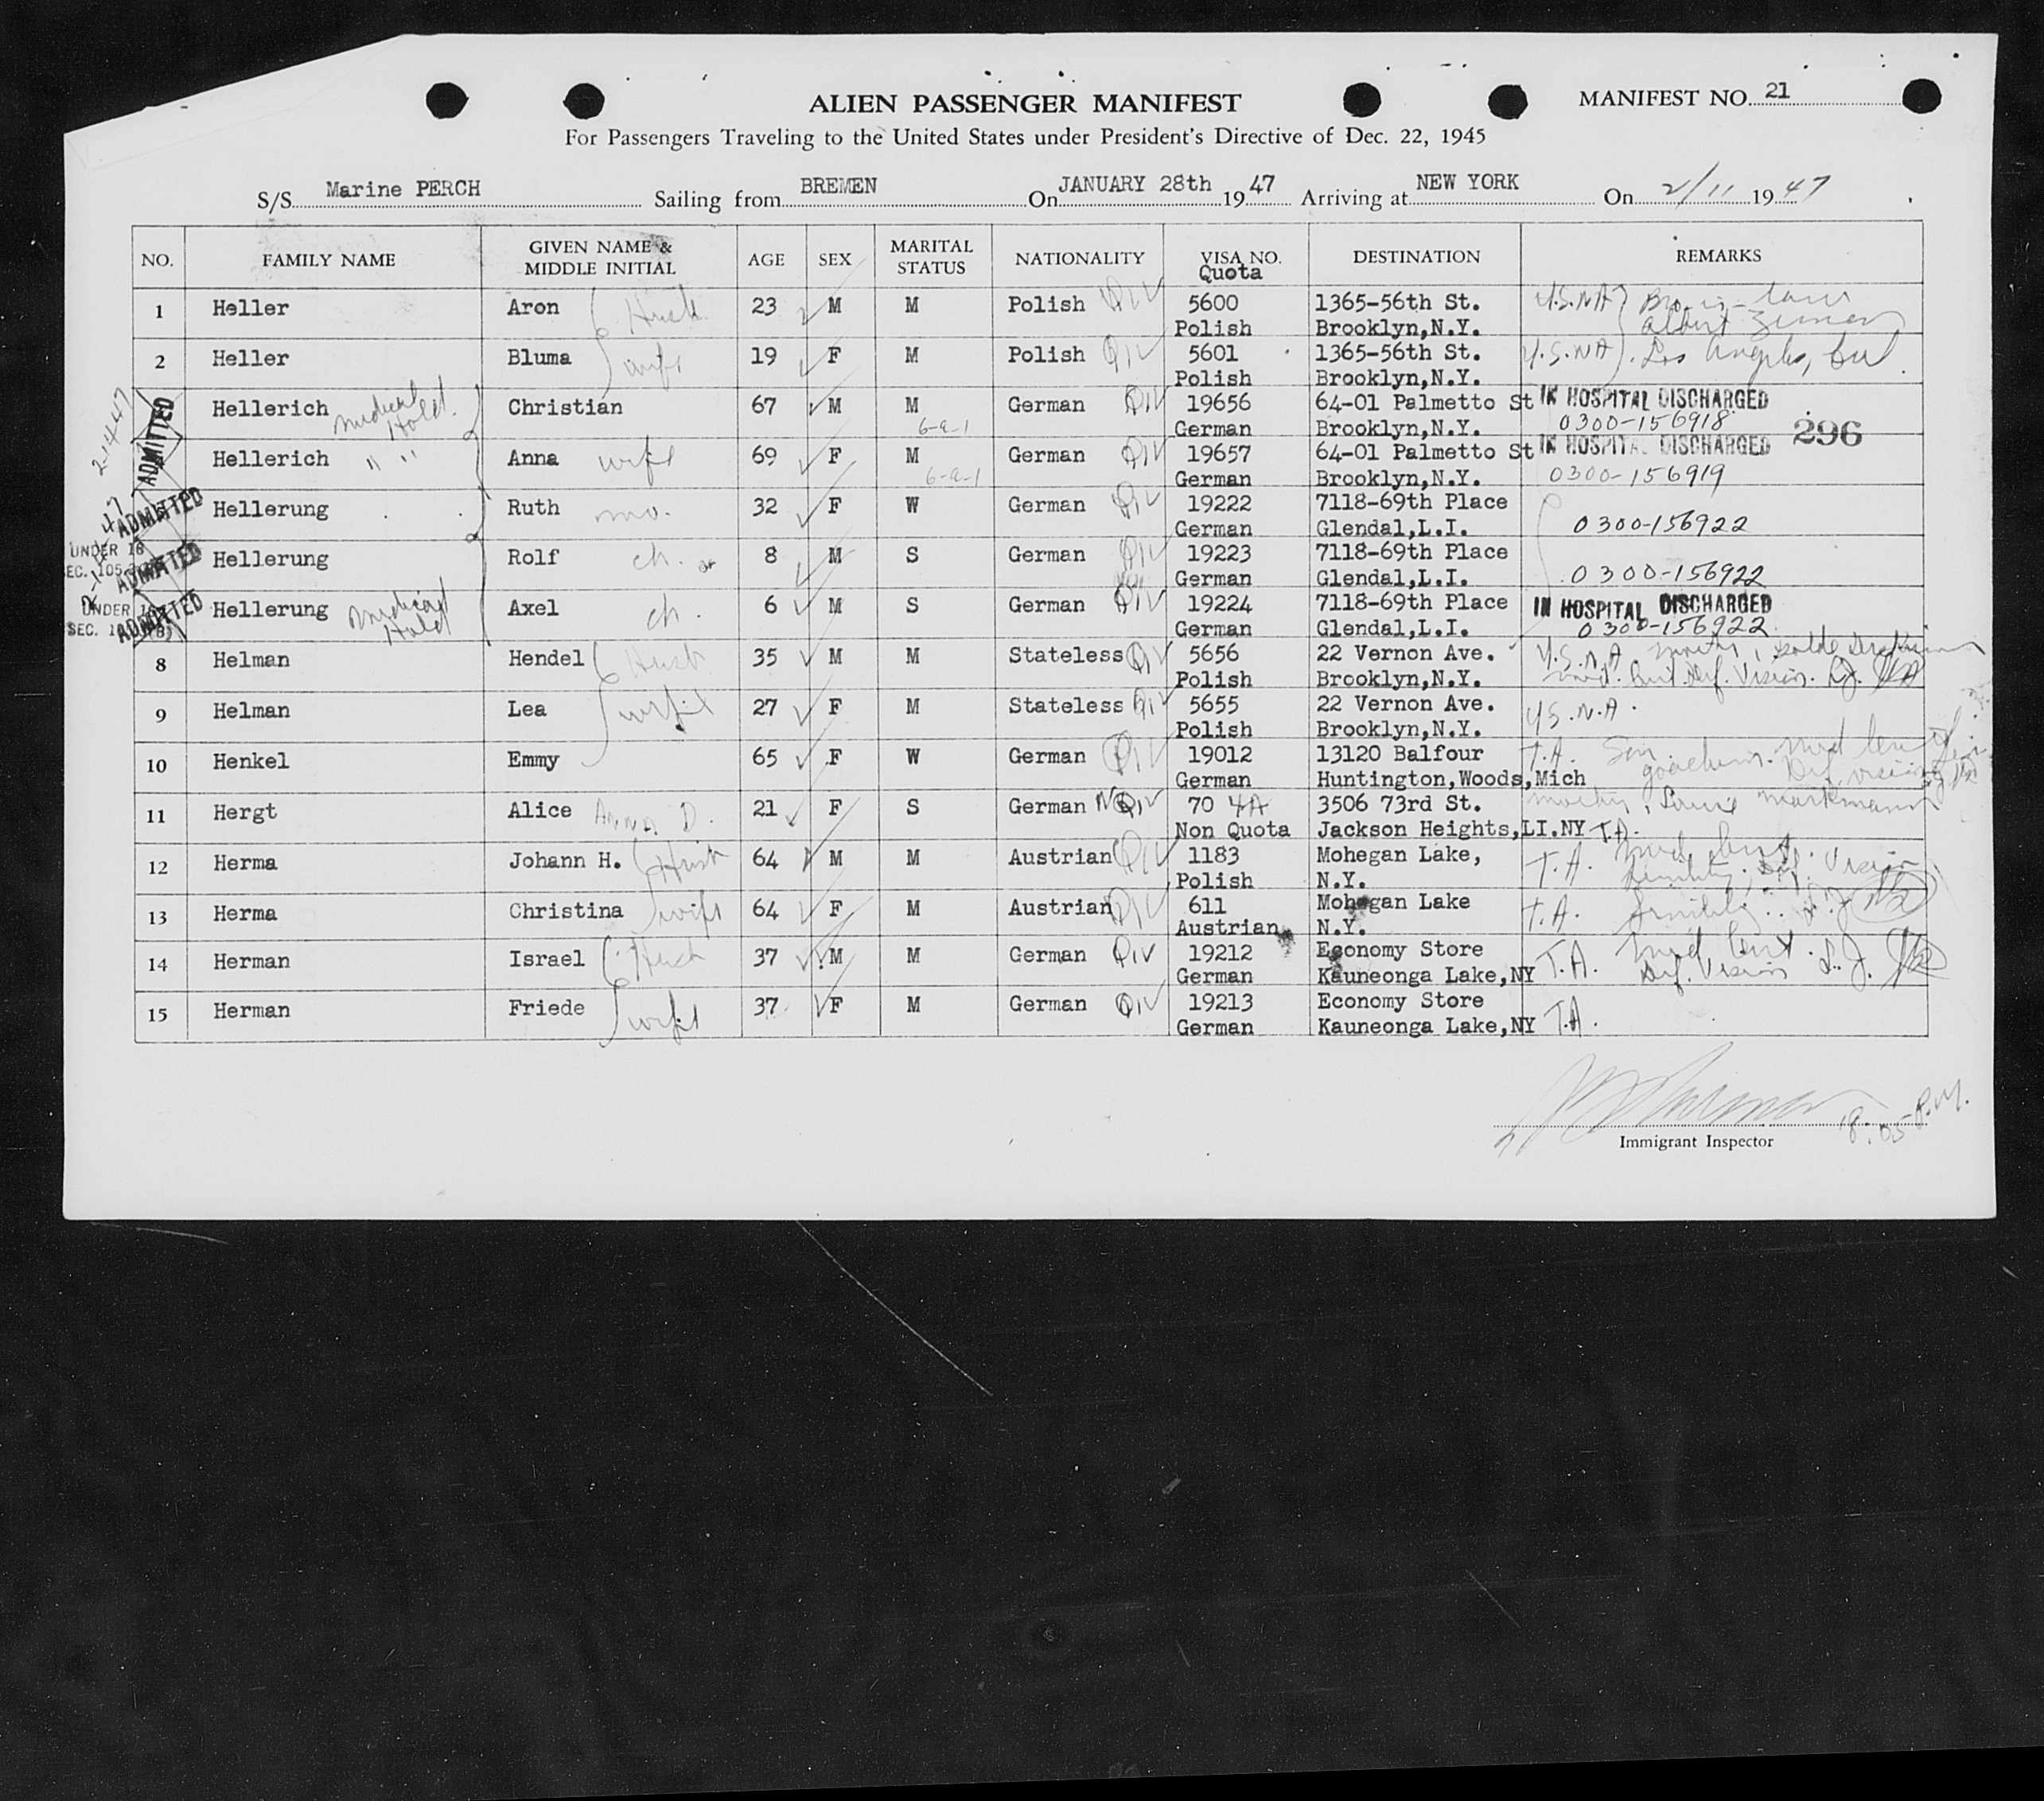 ALIEN PASSENGER MANIFEST
MANIFEST NO. 21
For Passengers Traveling to the United States under President's Directive of Dec. 22, 1945
S/S Marine PERCH Sailing from BREMEN On JANUARY 28th 19 47 Arriving at NEW YORK On 2/11 19 47
NO. FAMILY NAME GIVEN NAME & MIDDLE INITIAL AGE SEX MARITAL STATUS NATIONALITY VISA NO. Quota DESTINATION REMARKS
1 Heller Aron Husb. 23 M M Polish Div 5600 1365-56th St. U.S.N.A. Bro-in-law
Polish Brooklyn,N.Y. Albert
2 Heller Bluma wife 19 F M Polish Div 5601 1365-56th St. U.S.N.A. Los Angeles, Cal.
Polish Brooklyn,N.Y.
2-14-47 ADMITTED
Hellerich medical Hold. Christian 67 M M German Div 19656 64-01 Palmetto St IN HOSPITAL DISCHARGED
6-a-1 German Brooklyn,N.Y. 0300-156918 296
Hellerich " " Anna wife 69 F M German Div 19657 64-01 Palmetto St IN HOSPITAL DISCHARGED
6-a-1 German Brooklyn,N.Y. 0300-156919
ADMITTED Hellerung Ruth mo. 32 F W German Div 19222 7118-69th Place
German Glendal,L.I. 0300-156922
UNDER 16 ADMITTED Hellerung Rolf ch. 8 M S German Div 19223 7118-69th Place
German Glendal,L.I. 0300-156922
UNDER 16 ADMITTED Hellerung medical Hold Axel ch. 6 M S German Div 19224 7118-69th Place IN HOSPITAL DISCHARGED
German Glendal,L.I. 0300-156922
8 Helman Hendel Husb 35 M M Stateless Div 5656 22 Vernon Ave. U.S.N.A.
Polish Brooklyn,N.Y. med. Cert. Def. Vision.
9 Helman Lea wife 27 F M Stateless Div 5655 22 Vernon Ave. U.S.N.A.
Polish Brooklyn,N.Y.
10 Henkel Emmy 65 F W German Div 19012 13120 Balfour T.A. Son Med Cert
German Huntington,Woods,Mich Joachim. Def. vision
11 Hergt Alice Anna D. 21 F S German NQIV 70 4A 3506 73rd St.
Non Quota Jackson Heights,LI.NY T.A.
12 Herma Johann H. Husb 64 M M Austrian Div 1183 Mohegan Lake, T.A. Med Cert.
Polish N.Y. Senility, Def. Vision
13 Herma Christina wife 64 F M Austrian Div 611 Mohegan Lake T.A. Senility
Austrian N.Y.
14 Herman Israel Husb 37 M M German Div 19212 Economy Store T.A. Med Cert.
German Kauneonga Lake,NY Def. Vision
15 Herman Friede wife 37 F M German Div 19213 Economy Store
German Kauneonga Lake,NY T.A.
Immigrant Inspector 8:05 P.M.